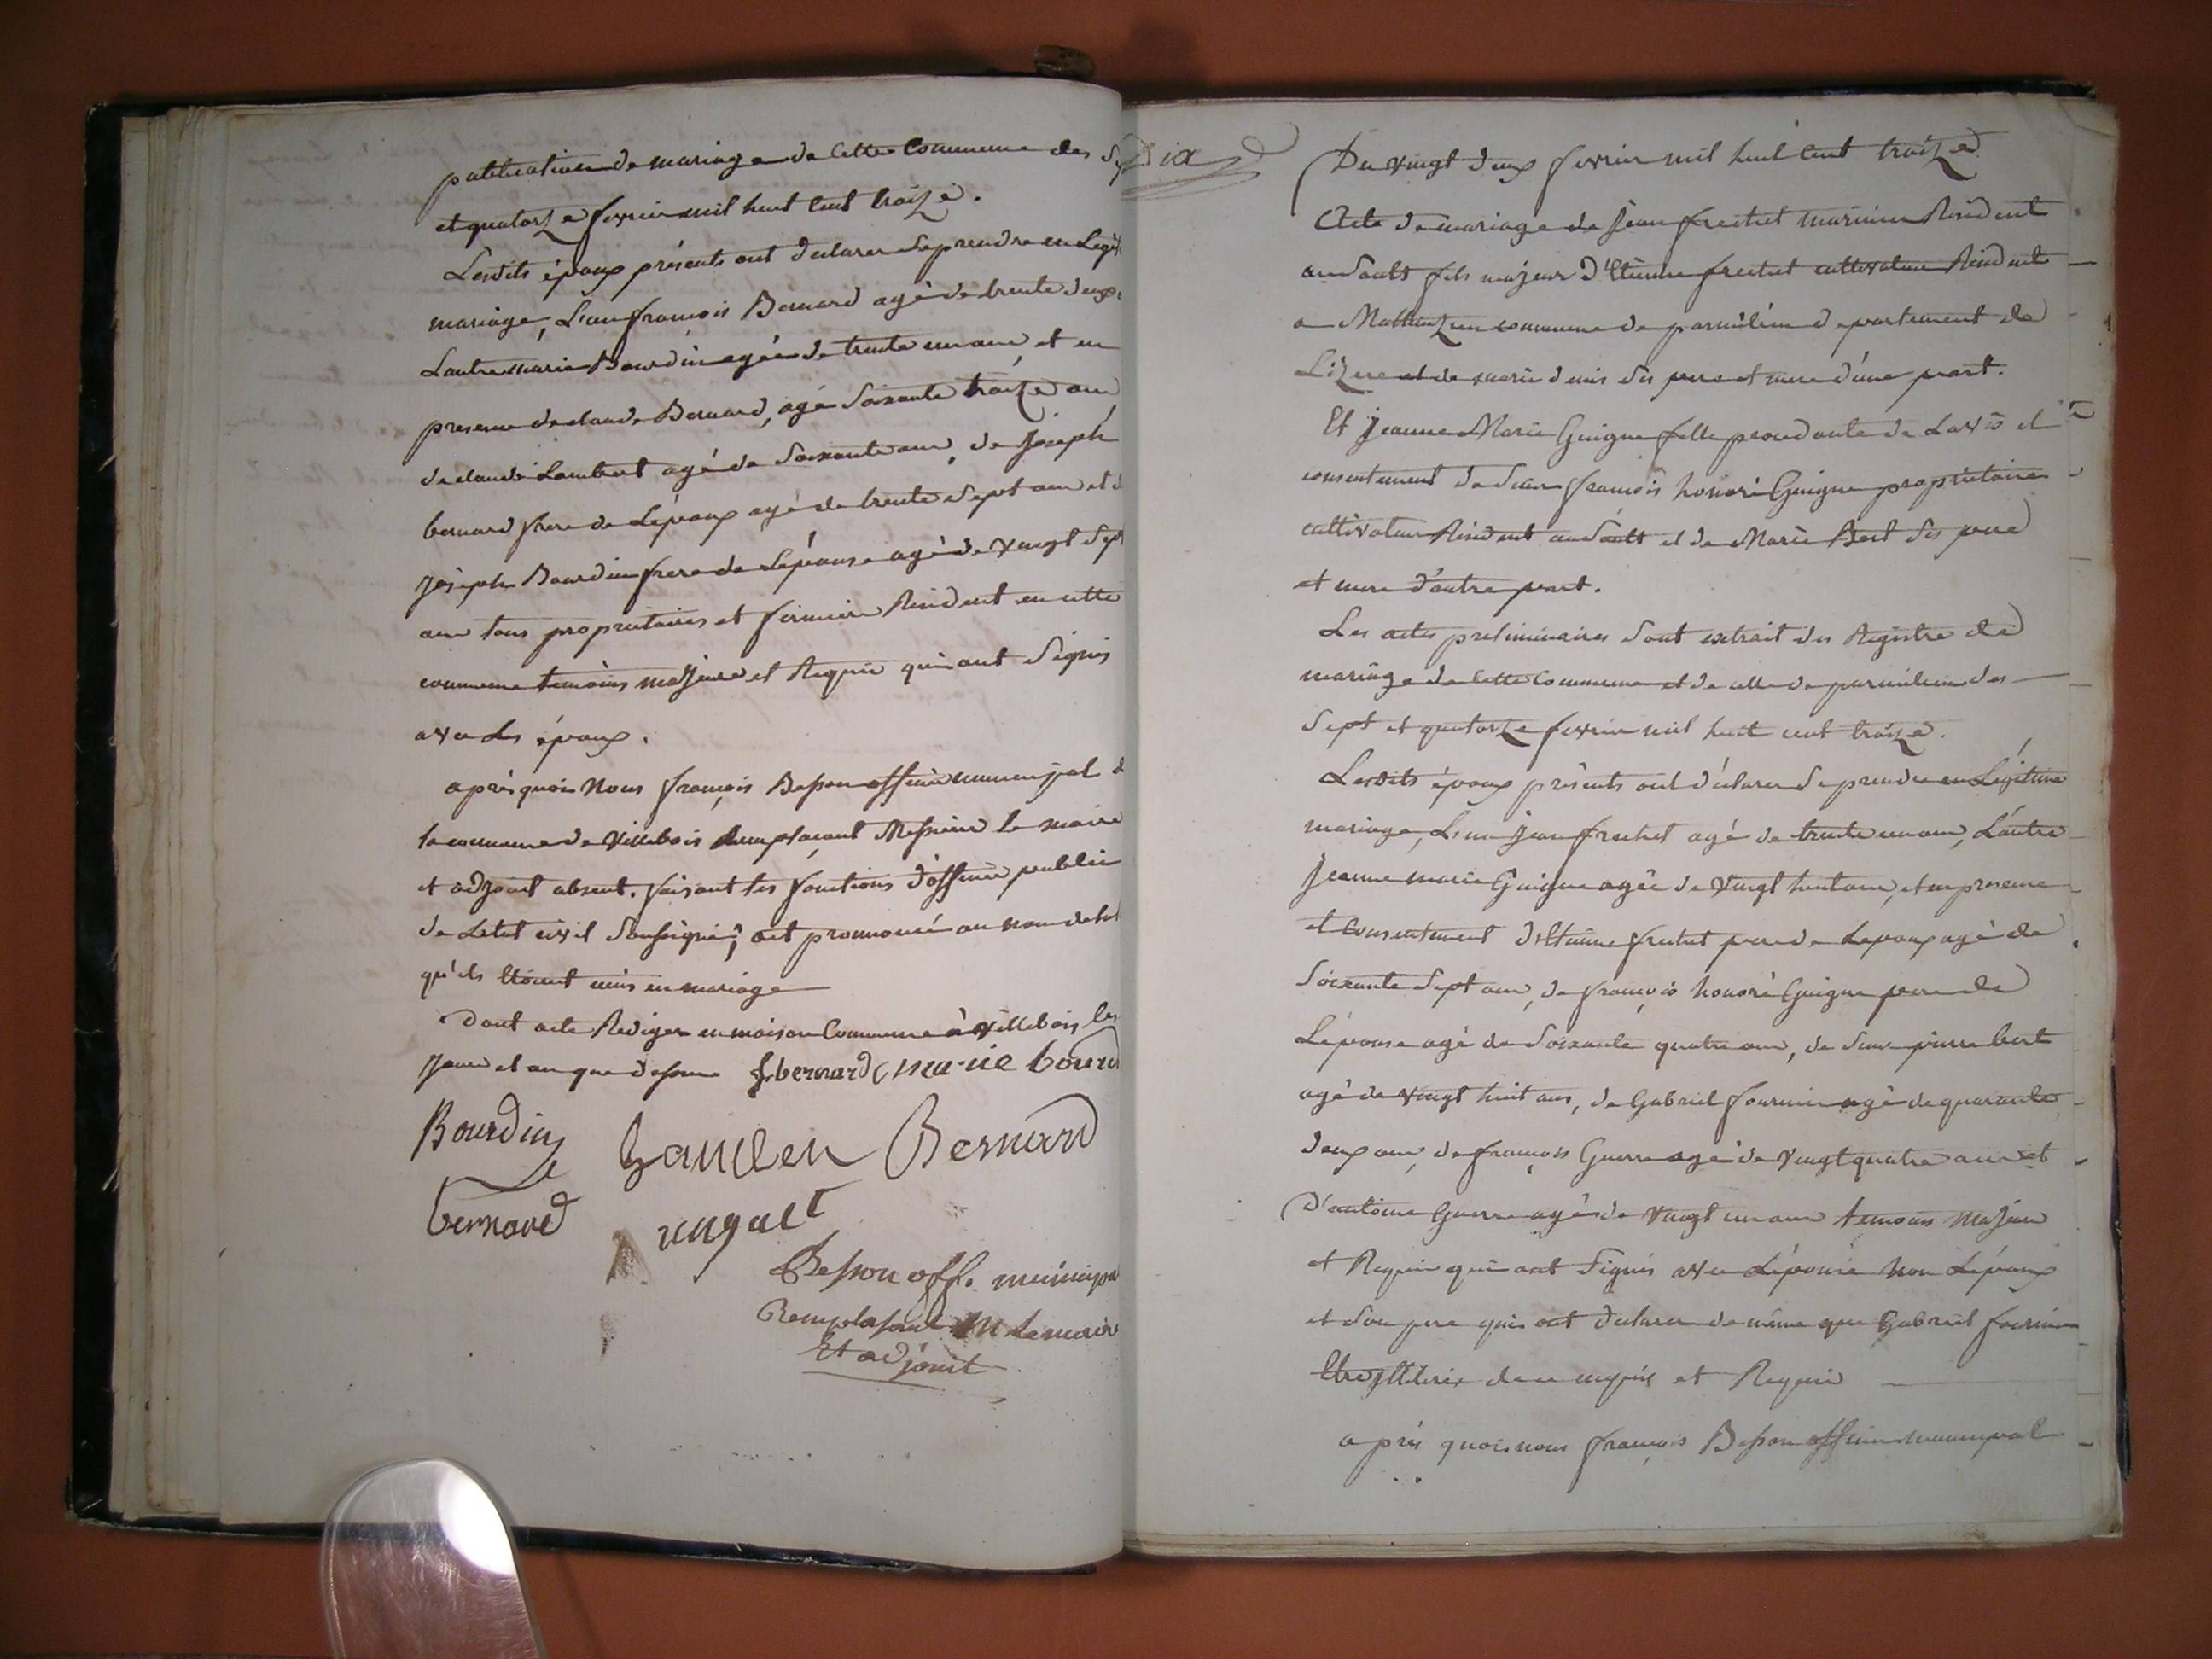 publication de mariage de cette Commune des Sep
et quatorze fevrier mil huit cent traize.
Lesdits époux présents ont declarer se prendre en Legit
mariage, L'un françois Bernard agé de trente deux
Lautre marie Bourdin agée de trente un ans, et en
presence de claude Bernard, agé soixante traize ans
de claude Lambert agé de soixante ans, de Joseph
bernard frere de Lépoux agé de trente sept ans et d
Joseph Bourdin frere de Lépouse agé de vingt sept
ans tous propriétaires et fermier Résident en cette
commune temoins majeurs et Requis qui ont Signés
avec les époux.
après quoi Nous françois Besson officier municipal d
la commune de Villebois Remplaçant Messieur le maire
et adjoint absent. faisant les fonctions d'officier public
de Letat civil Soussigné; ont prononcé au nom de la l
qu'ils étoient unis en mariage
Dont acte Rediger en maison Commune à Villebois les
Jour et an que dessus f. bernard marie bourd
Bourdin Bernard
bernard
Besson off. municipal
Remplasant M Le maire
Et adjoint
Dix
Du vingt deux fevrier mil huit cent traize
Acte de mariage de Jean frechet marinier Résident
au Sault fils majeur d'Etienne frechet cultivateur Résident
a commune de parmilieu departement de
Lizere et de marie denis ses pere et mere d'une part.
Et Jeanne Marie Guigue fille procedante de Lavis et
consentement de Sieur françois honoré Guigue propriétaire
cultivateur Résident au Sault et de Marie Bert ses pere
et mere d'autre part.
Les actes preliminaires sont extrait des Registre de
mariage de cette Commune et de celle de parmilieu des
Sept et quatorze fevrier mil huit cent traize.
Lesdits époux présents ont déclarer se prendre en Légitime
mariage, L'un jean frechet agé de trente un ans, Lautre
Jeanne marie Guigue agée de vingt huit ans, et en presence
et Consentement d'Etienne frechet pere de Lepoux agé de
Soixante Sept ans, de françois honoré Guigue pere de
Lépouse agé de Soixante quatre ans, de Sieur pierre bert
agé de vingt huit ans, de Gabriel fournier agé de quarante
deux ans, de françois Guerre agé de vingt quatre ans et
D'antoine Guerre agé de vingt un ans temoins majeurs
et Requis qui ont Signés avec Lépouse non Lépoux
et Son pere qui ont declarer de même que Gabriel fournier
de ce enquis et Requis
après quoi nous françois Besson officier municipal